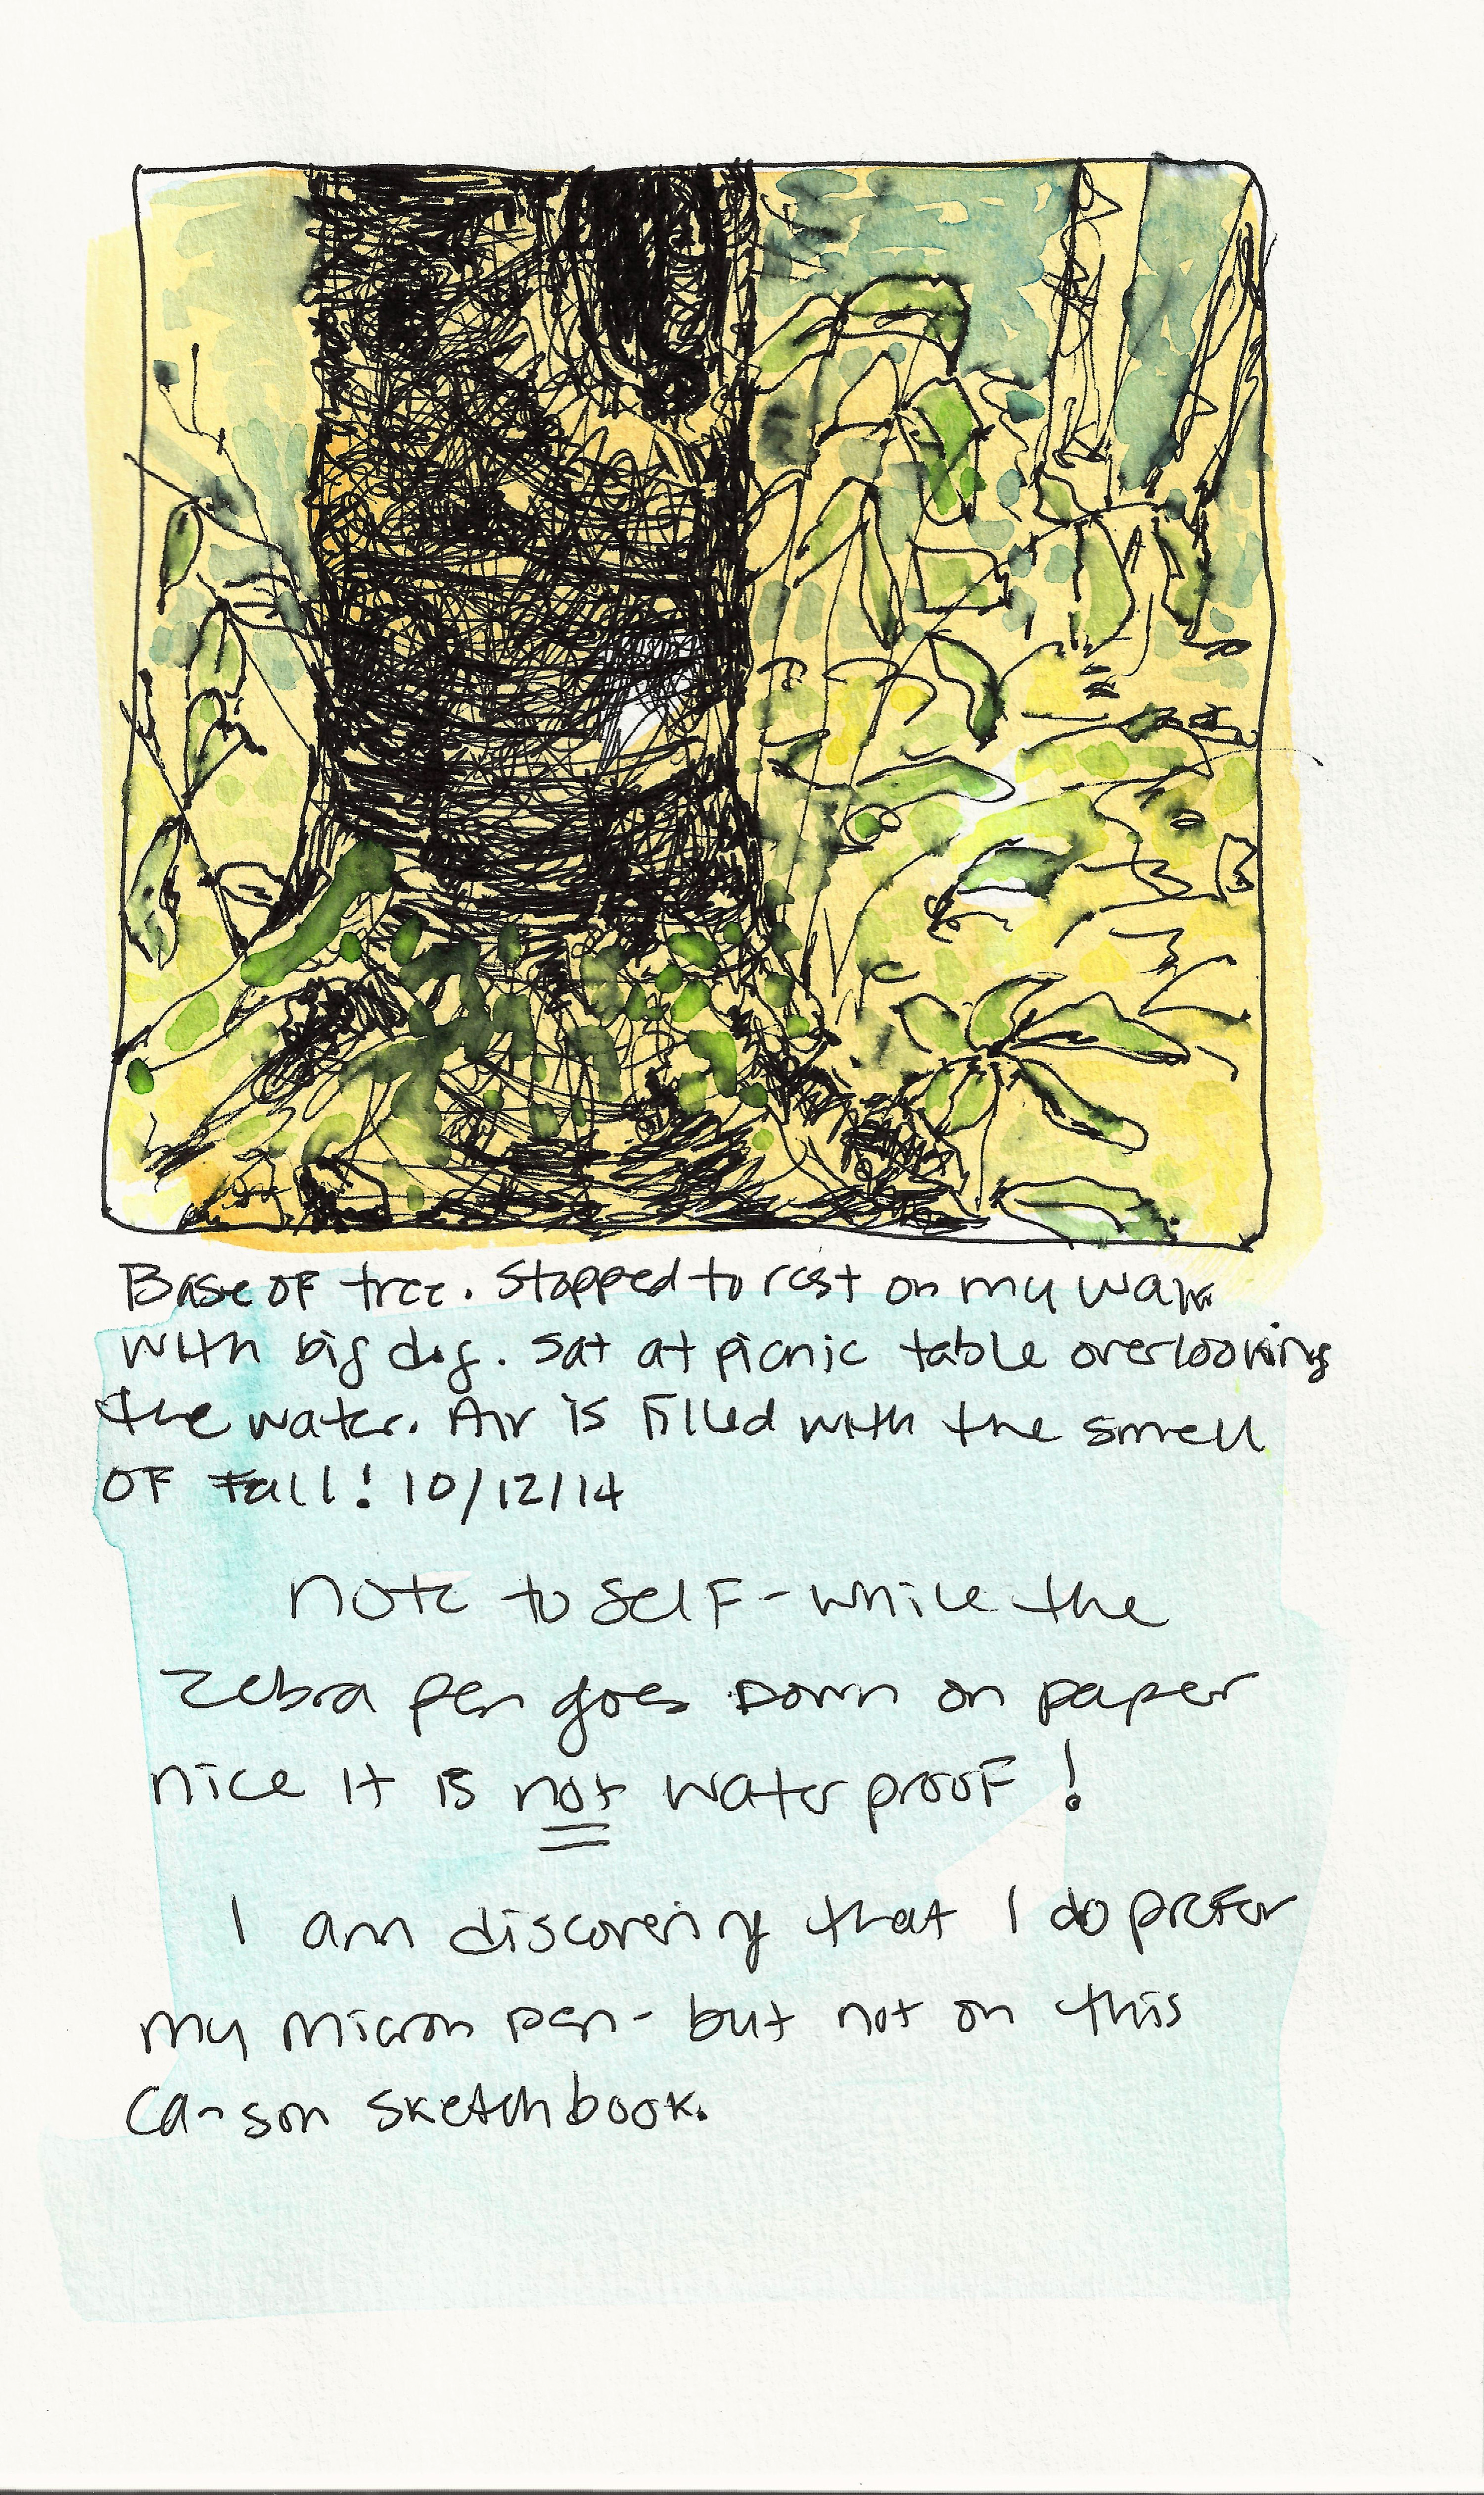 Base of tree. Stopped to rest on my walk
with big dog. Sat at picnic table overlooking
the water. Air is filled with the smell
of Fall! 10/12/14
note to self - while the
Zebra pen goes down on paper
nice it is not waterproof!
I am discovering that I do prefer
my micron pen - but not on this
Canson sketchbook.